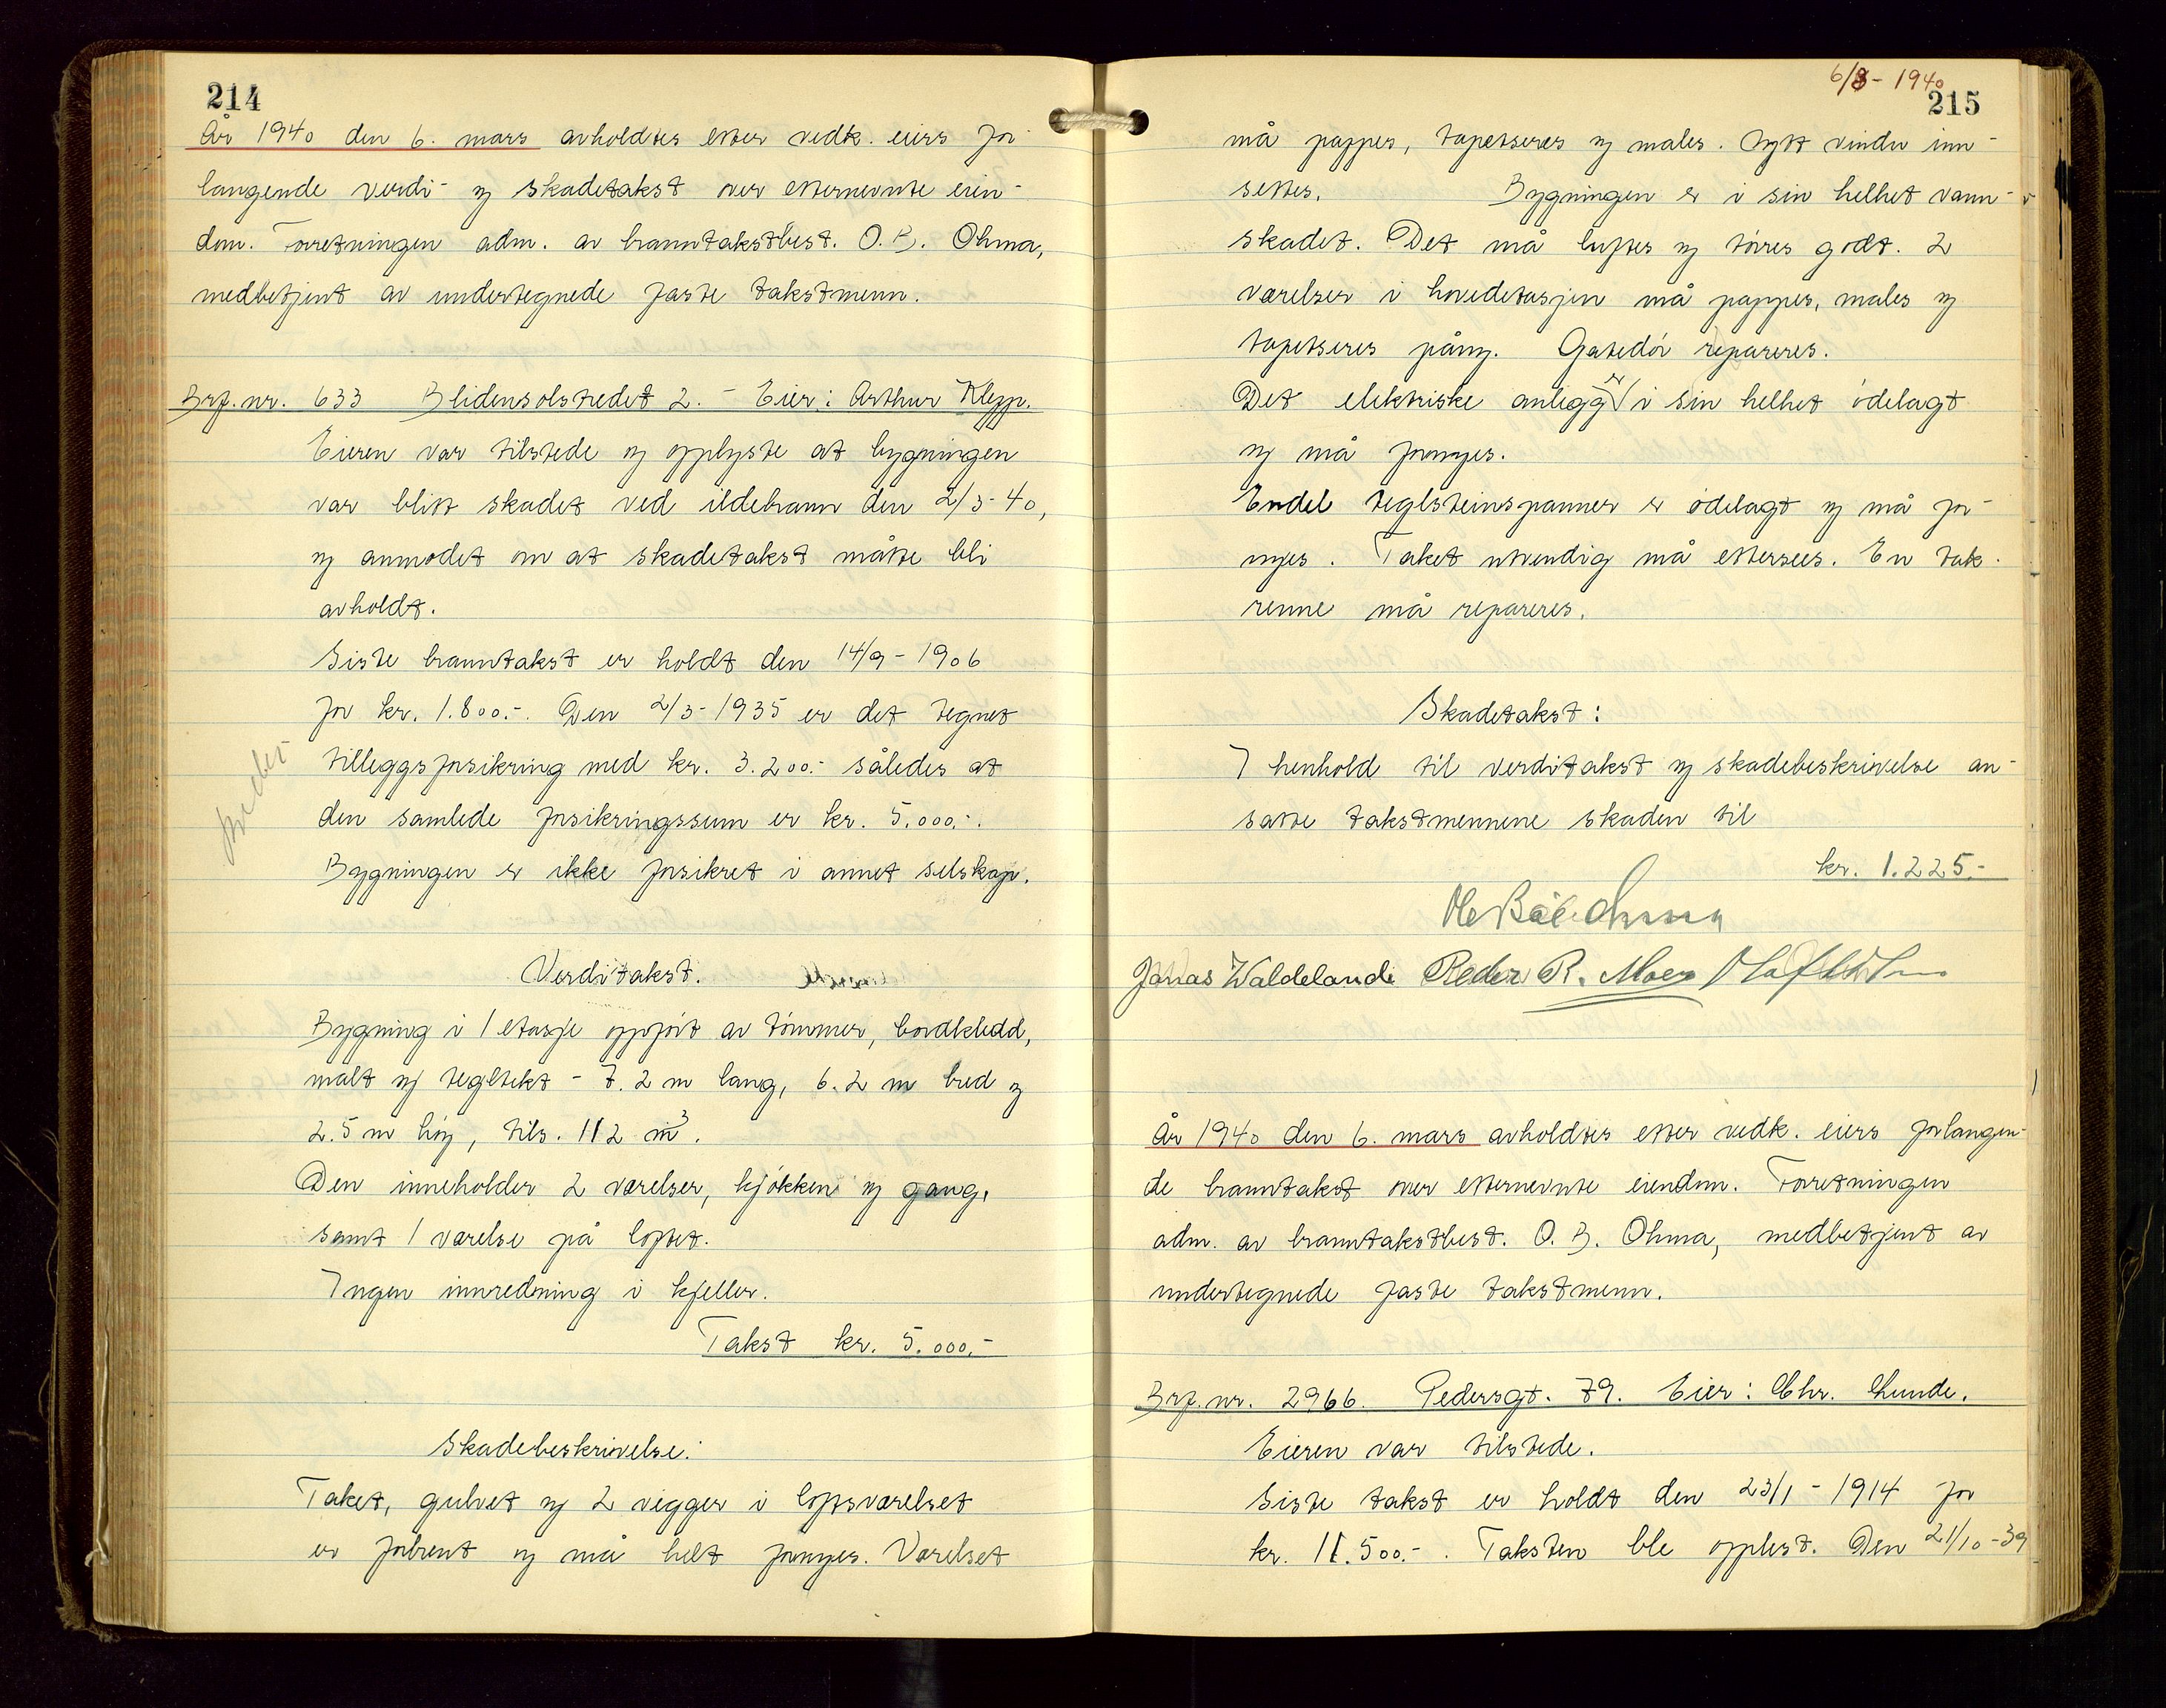 214
År 1940 den 6. mars avholdtes etter vedk. eiers for-
langende verdi- og skadetakst over etternevnte eien-
dom. Forretningen adm. av branntakstbest. O. B. Ohma,
medbetjent av undertegnede faste takstmenn.
Brf. nr. 633 Blidensolstredet 2. - Eier: Arthur Klepp.
Eieren var tilstede og opplyste at bygningen
var blitt skadet ved ildebrann den 2/3-40,
og anmodet om at skadetakst måtte bli
avholdt.
Siste branntakst er holdt den 14/9-1906
for kr. 1.800.-. Den 2/3-1935 er det tegnet
tilleggsforsikring med kr. 3.200.- således at
den samlede forsikringssum er kr. 5.000.-.
Bygningen er ikke forsikret i annet selskap.
Verditakst.
Bygning i 1 etasje oppført av tømmer, bordkledd,
malt og tegltekt - 7.2 m lang, 6.2 m bred og
2.5 m høy, tils. 112 m³.
Den inneholder 2 værelser, kjøkken og gang,
samt 1 værelse på loftet.
Ingen innredning i kjeller.
Takst kr. 5.000.-
Skadebeskrivelse:
Taket, gulvet og 2 vegger i loftsværelset
er forbrent og må helt fornyes. Værelset
6/3-1940
215
må pappes, tapetseres og males. Nytt vindu inn-
settes. Bygningen er i sin helhet vann-
skadet. Det må luftes og tørres godt. 2
værelser i hovedetasjen må pappes, males og
tapetseres påny. Gatedør repareres.
Det elektriske anlegg er i sin helhet ødelagt
og må fornyes.
Endel teglsteinspanner er ødelagt og må for-
nyes. Taket utvendig må ettersees. En tak-
renne må repareres.
Skadetakst:
I henhold til verditakst og skadebeskrivelse an-
satte takstmennene skaden til
kr. 1.225.-
Jonas Waldeland Peder R. Moen
År 1940 den 6. mars avholdtes etter vedk. eiers forlangen-
de branntakst over etternevnte eiendom. Forretningen
adm. av branntakstbest. O. B. Ohma, medbetjent av
undertegnede faste takstmenn.
Brf. nr. 2966. Pedersgt. 79. Eier: Chr. Lunde.
Eieren var tilstede.
Siste takst er holdt den 23/1-1914 for
kr. 11.500.-. Taksten ble opplest. Den 21/10-39